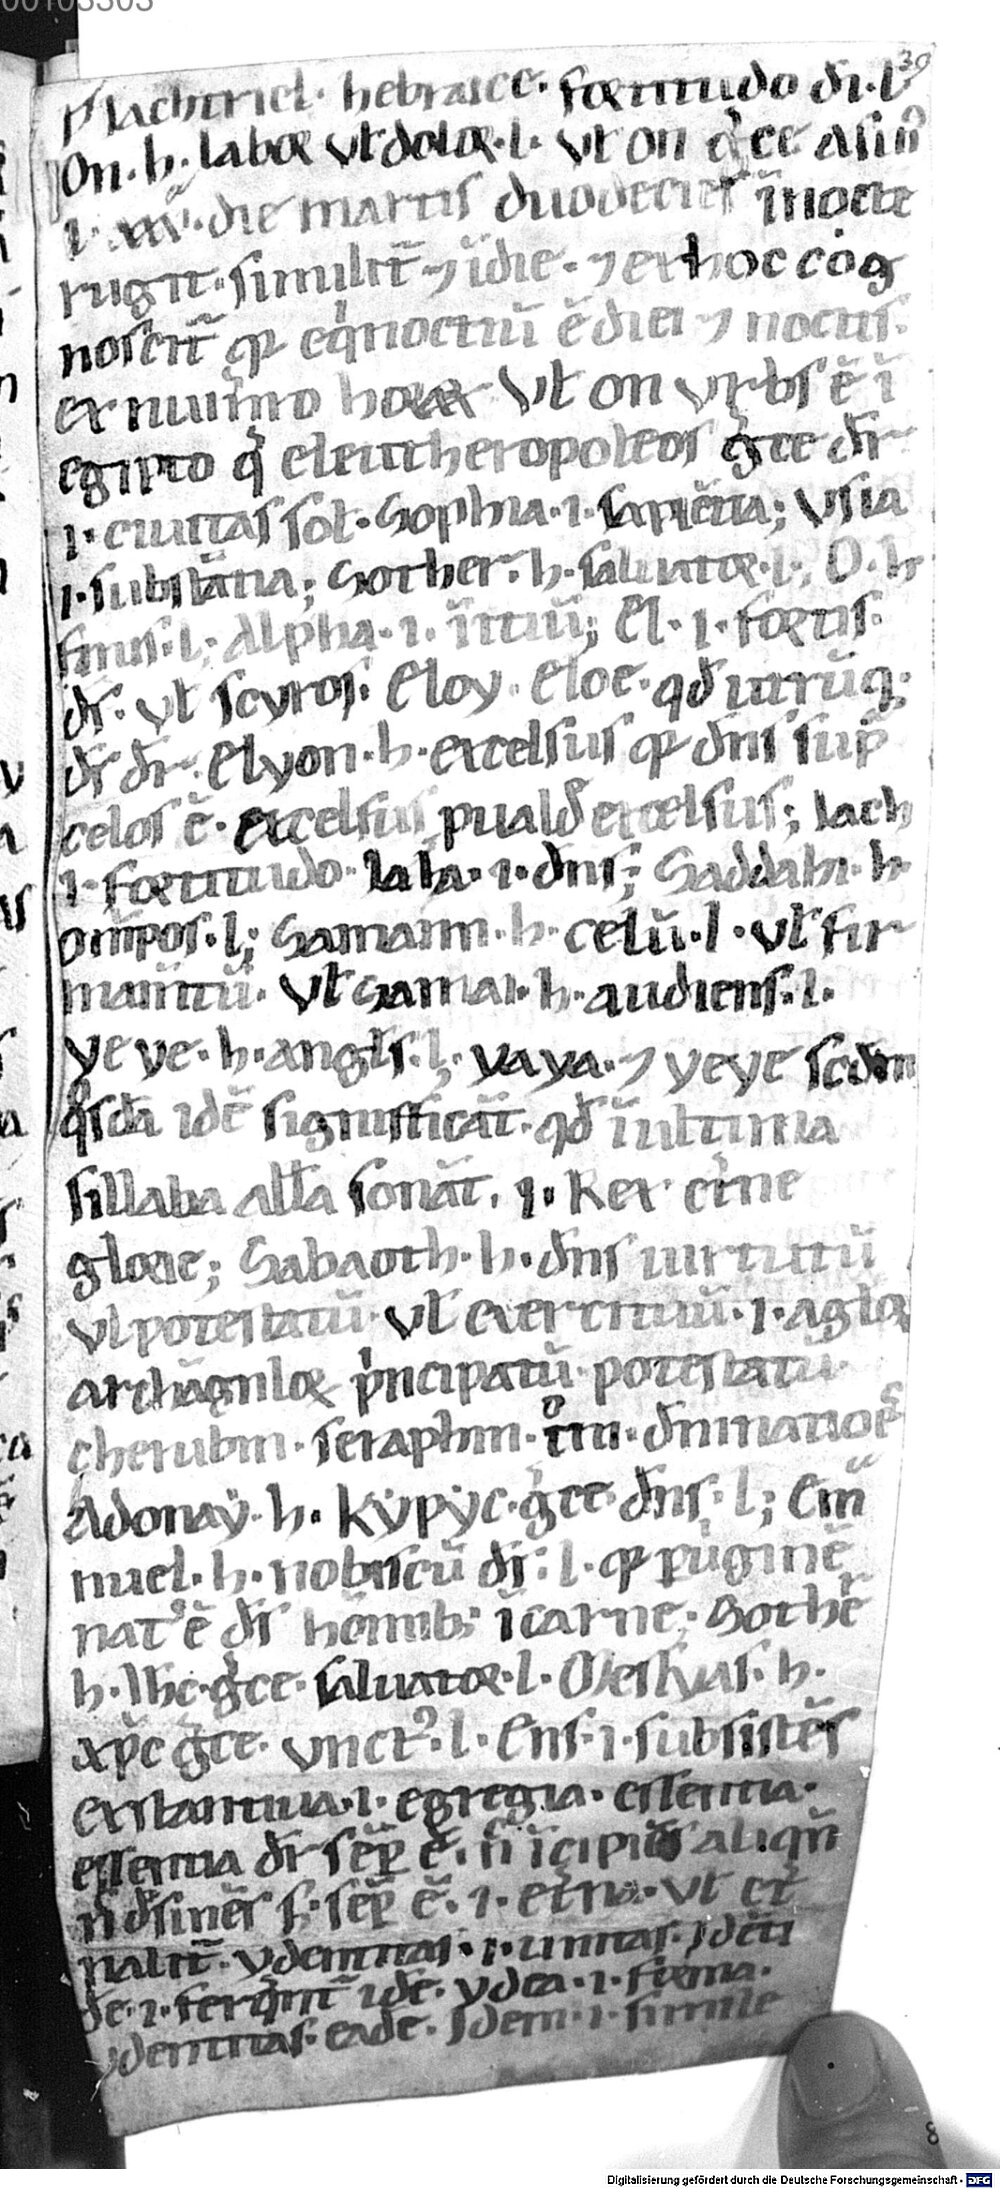 00103303
30
lachtriel · hebraice · fortitudo di · l ·
On · h · labor vł dolor · l · vł on gͥce asin⁹
die martis duodecies ī nocte
rugit · similit̄ ⁊ ī die · ⁊ ex hoc cog
noscit̄ qꝫ eqͥnoctiū ē diei ⁊ noctis ·
ex num̄o horaꝝ vł on vrbs ē ī
egipto q̄ eleutheropoleos gͥce dr̄
i · ciuitas sol̄ · Sophia · i · sapiētia ; vsia
i · substātia ; Sother · h · saluator · l · ; O · h
finis · l ; Alpha · i · initiū ; El · i · fortis ·
ds̄ · vł scyros · Eloy · Eloe · qd̄ utrūqꝫ
ds̄ dr̄ · Elyon · h · excelsus qꝫ dn̄s sup̄
celos ē · excelsus excelsus ; Iach
i · fortitudo · i · dn̄s ; Saddahi · h ·
om̄ps · l ; Samaim · h · celū · l · vł fir
mam̄tū · vł Samai · h · audiens · l ·
yeve · h · angl̄s · l · vaya · ⁊ yeye scdm
qͦsdā idē significāt · qd̄ ī ultima
sillaba all̄a sonāt · i · Rex etͥne
glorie ; Sabaoth · h · dn̄s uirtutū
vł potestatū · vł exercituū · i · agl̄oꝝ
archāgiloꝝ pͥncipatū · potestatū
cherubin · seraphin · tͦni · dn̄natioēˢ
Adonaÿ · h · Kÿpÿc · gͥce · dn̄s · l ; Em̄
nuel · h · nobiscū ds̄ · l · qꝫ p uͥginē
nat⁹ ē ds̄ homībꝫ ī carne · Sother
h · Ihc · gͥce · saluator · l · Messyas · h ·
xp̄c gͥce · vnct⁹ · l · Ens · i · subsistēs
Exstantiua · i · egregia · essentia ·
essentia ds̄ sēp̄ ē · n̄ īcipiēs aliqn̄
n̄ dsinēs sꝫ sēp̄ ē · i · etͥna · vł etͥ
nalit̄ · ydemtitas · i · unitas · Idēti
idē · ydea · i · forma ·
ydemtitas · eadē · Idem · i · simile
8
Digitalisierung gefördert durch die Deutsche Forschungsgemeinschaft - DFG